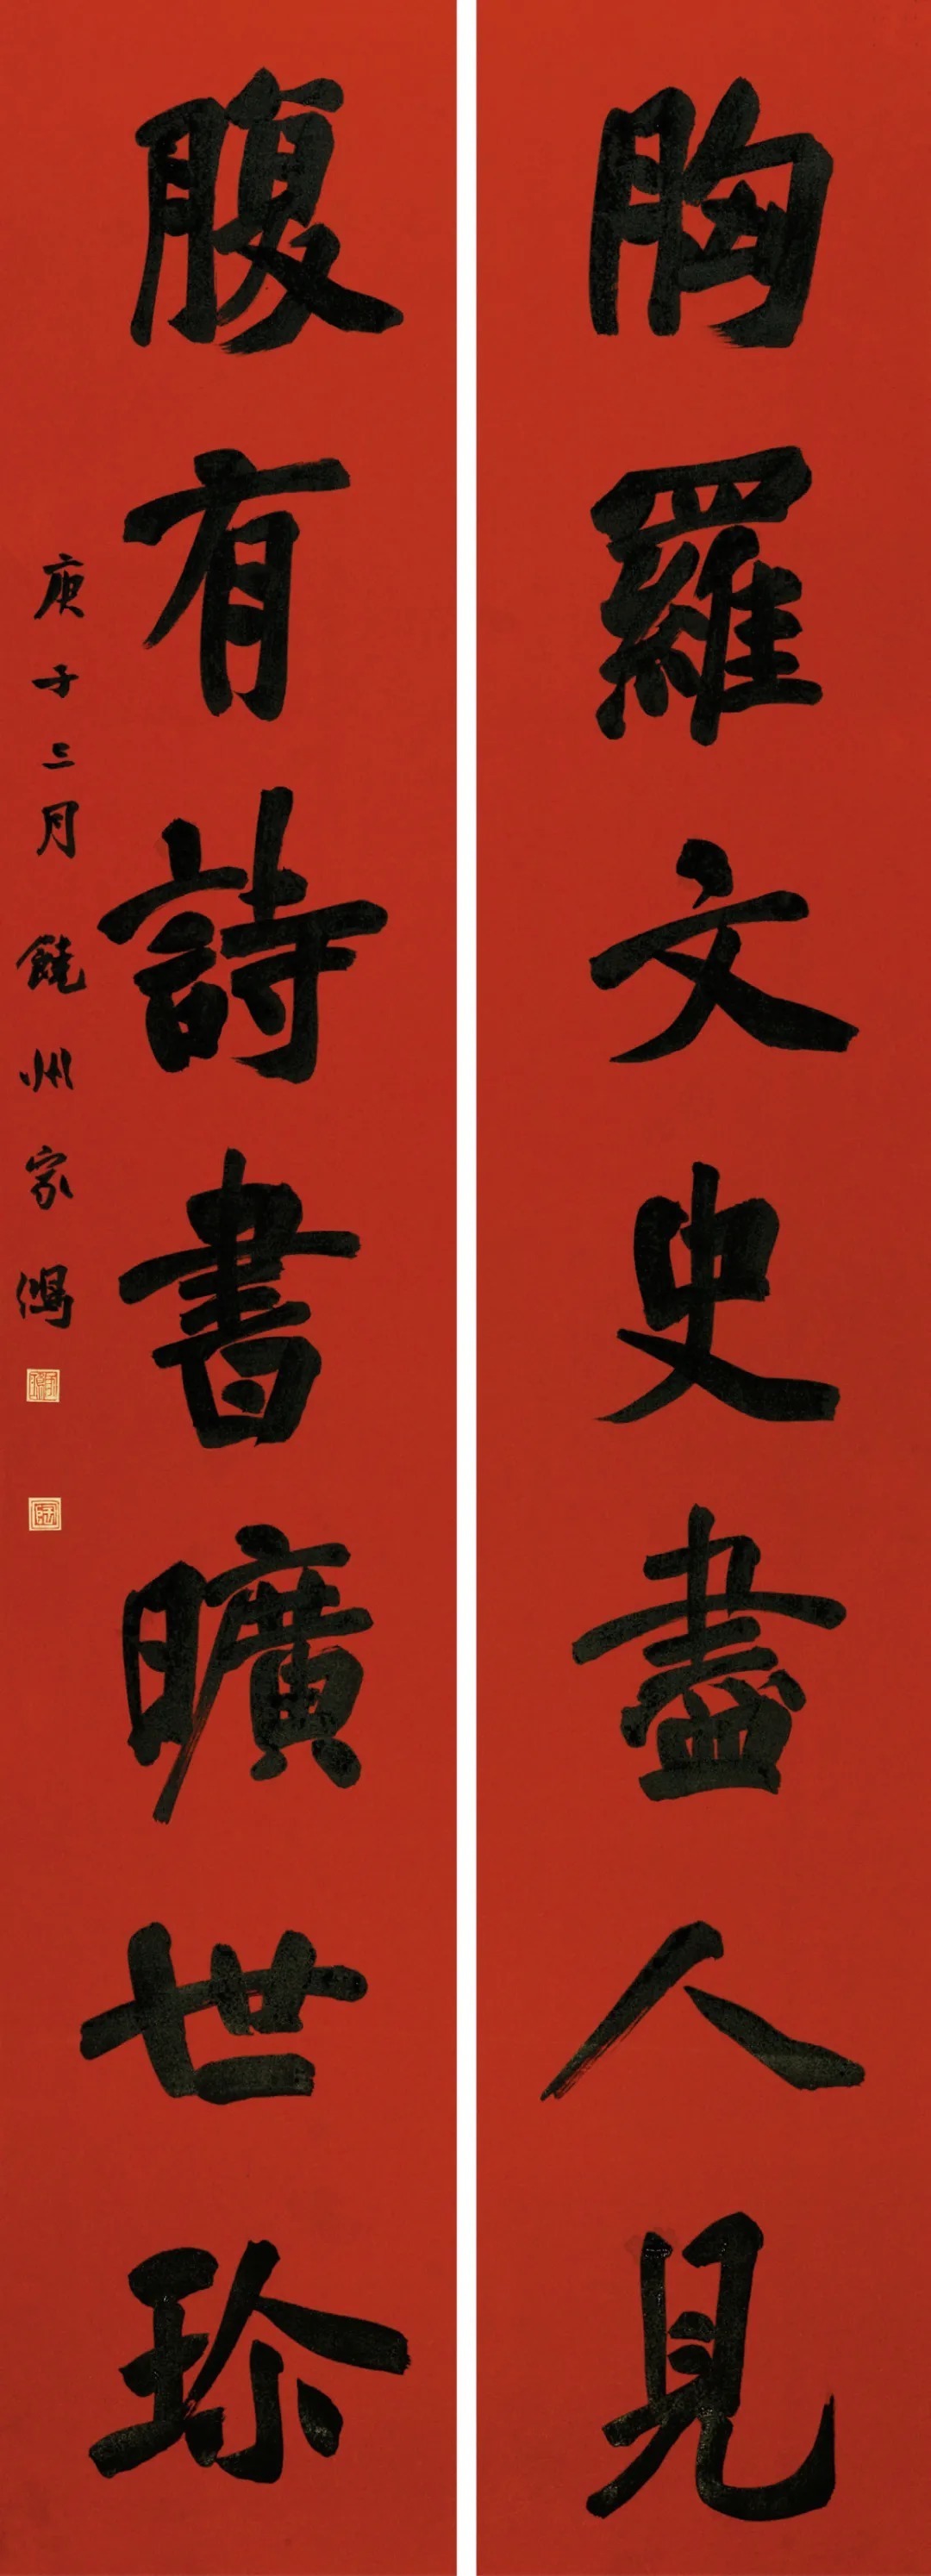 胸羅文史盡人見
腹有詩書曠世珍
庚子三月 饒州家鴻